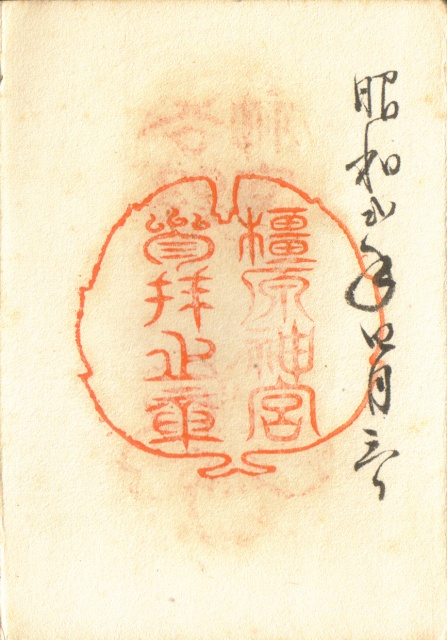 昭和 年四月三日
橿原神宮
參拜之章